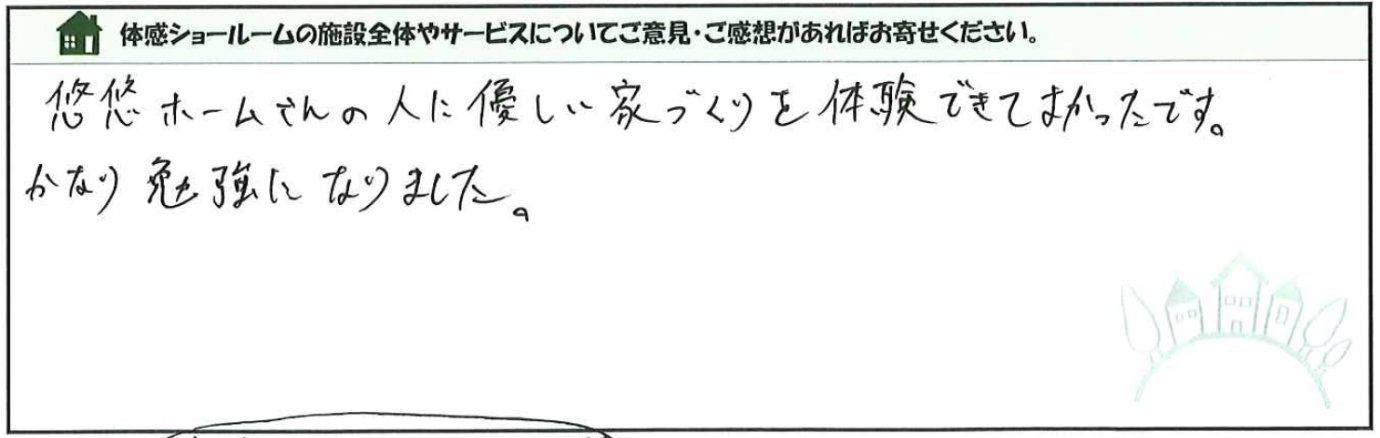 体感ショールームの施設全体やサービスについてご意見・ご感想があればお寄せください。
悠悠ホームさんの人に優しい家づくりを体験できてよかったです。
かなり勉強になりました。